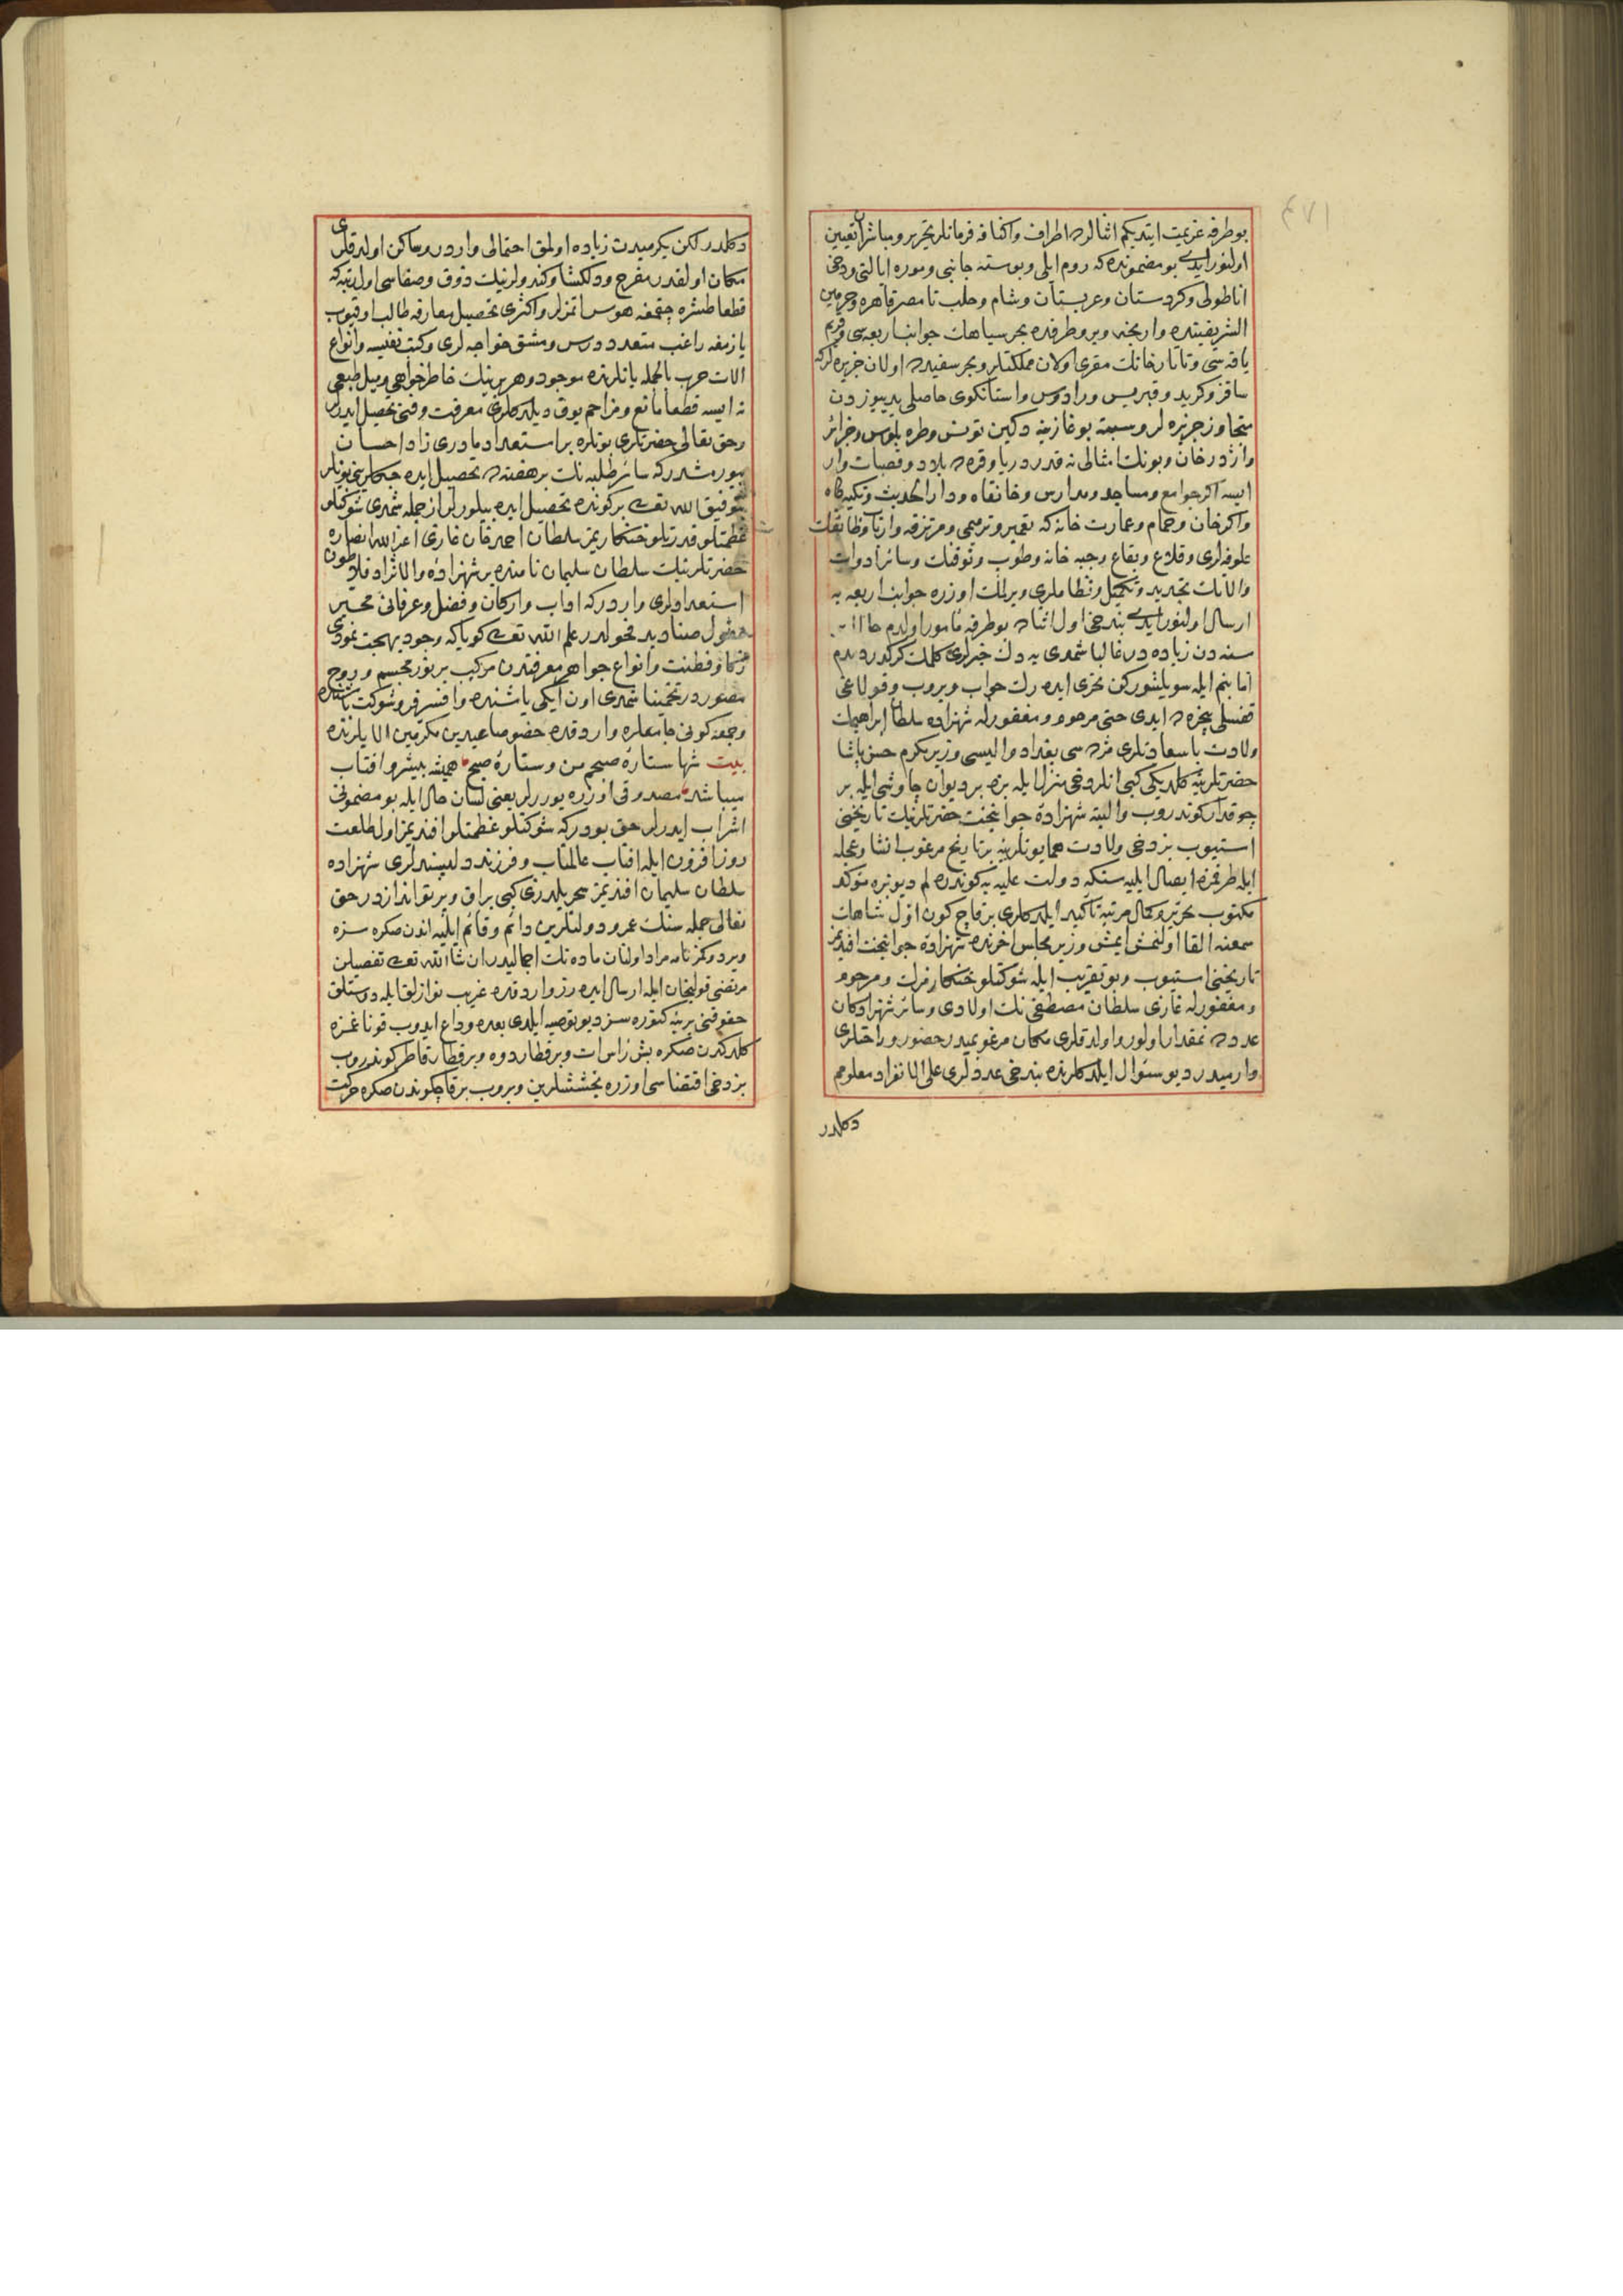 ٤٧١
بو طرفه عزیمت ایتدیکم اثنالرده اطراف واکنافه فرمانلر تحریر ومباشرلر تعیین
اولنور ایدی بو مضمونده که روم ایلی وبوسنه جانبی وموره ایالتی ودخی
اناطولی وکردستان وعربستان وشام وحلب تا مصر قاهره وحرمین
الشریفینه وارنجه وبرو طرفده بحر سیاهك جوانب اربعه سی وقریم
یاقه سی وتاتار خانك مقری اولان مملکتلر وبحر سفیدده اولان جزیره لرکه
ساقز وکرید وقبریس ورادوس واستانکوی حاصلی یدییوزدن
متجاوز جزیره لر وسبته بوغازینه دکین تونس وطرابلوس وجزائر
واژدرخان وبونك امثالی نه قدر دریا وقره ده بلاد وقصبات وار
ایسه اکر جوامع ومساجد ومدارس وخانقاه ودار الحدیث وتکیه کاه
واکر خان وحمام وعمارت خانه که تعمیر وترمیمی ومرتزقه وارباب وظائفك
علوفه لری وقلاع وبقاع وجبه خانه وطوب وتوفنك وسائر ادوات
والاتك تجدید وتکمیل ونظاملری ویرلمك اوزره جوانب اربعه یه
ارسال اولنور ایدی بندخی اول اثناده بو طرفه مأمور اولدم حالا بر
سنه دن زیاده در غالبا شمدی یه دك خبرلری کلمك کرکدر دیدم
اما بنم ایله سویلشورکن تحری ایده رك جواب ویروب وقولاغی
قفسلی پنجره ده ایدی حتی مرحوم ومغفورله شهزاده سلطان ابراهیمك
ولادت باسعادتلری مژده سی بغداد والیسی وزیر مکرم حسن پاشا
حضرتلرینه کلدیکی کبی انلر دخی منزل ایله بزه بر دیوان چاوشی ایله بر
چوقدار کوندروب والبته شهزاده جوانبخت حضرتلرینك تاریخنی
استیوب بزدخی ولادت همایونلرینه بر تاریخ مرغوب انشا وعجله
ایله طرفمزه ایصال ایلیه سنکه دولت علیه یه کوندره لم دیو بزه مؤکد
مکتوب تحریر وکمال مرتبه تأکید ایلدکلری برقاچ کون اول شاهك
سمعنه القا اولنمش ایمش وزیر مجلس اخرنده شهزاده جوانبخت افندیمز
تاریخنی استیوب وبو تقریب ایله شوکتلو خنکارمزك ومرحوم
ومغفورله غازی سلطان مصطفی نك اولادی وسائر شهزادکان
عددده نمقدار اولور واولدقلری مکان مرغوبمیدر حضور وراحتلری
وارمیدر دیو سؤال ایلدکلرنده بندخی عددلری علی الانفراد معلومم
دکلدر
دکلدر لکن یکرمیدن زیاده اولمق احتمالی واردر وساکن اولدقلری
مکان اولقدر مفرح ودلکشا وکندولرینك ذوق وصفاسی اول رتبه که
قطعا طشره چقمغه هوس اتمزلر واکثری تحصیل معارفه طالب اوقیوب
یازمغه راغب متعدد درس ومشق خواجه لری وکتب نفیسه وانواع
الات حرب بالجمله یانلرنده موجود وهر برینك خاطر خواهی ومیل طبعی
نه ایسه قطعا مانع ومزاحم یوق دیلدکلری معرفت وفنی تحصیل ایدرلر
وحق تعالی حضرتلری بونلره بر استعداد مادری زاد احسان
بیورمشدر که سائر طلبه نك بر هفته ده تحصیل ایده جکلرینی بونلر
بتوفیق الله تعالی بر کونده تحصیل ایده بیلورلر از جمله شمدی شوکتلو
عظمتلو قدرتلو خنکاریمز سلطان احمد خان غازی اعز الله انصاره
حضرتلرینك سلطان سلیمان نامنده بر شهزاده والانژاد فلاطون
استعدادلری واردر که اداب وارکان وفضل وعرفانی محیر
عقول صنادید فحولدر علم الله تعالی کویا که وجود بهجت نمودی
ذکا وفطنت وانواع جواهر معرفتدن مرکب بر نور مجسم وروح
مصوردر تخمینا شمدی اون ایکی یاشنده وافسر فر وشوکت باشنده
وجمعه کونی جامعلره واردقده خصوصا عیدین مکرمین الایلرنده
بیت شها ستارۀ صبحم من وستارۀ صبح همیشه پیشرو افتاب
میباشد مصدوقی اوزره یوررلر یعنی لسان حال ایله بو مضمونی
اشراب ایدرلر حق بودر که شوکتلو عظمتلو افندیمز اول طلعت
روز افزون ایله افتاب عالمتاب وفرزند دلپسندلری شهزاده
سلطان سلیمان افندیمز سحر یلدزی کبی براق وپرتو اندازدر حق
تعالی جمله سنك عمر ودولتلرین دائم وقائم ایلیه اندن صکره سزه
ویردوکمز نامه مراد اولنان ماده نك اجمالیدر ان شا الله تعالی تفصیلن
مرتضی قولیخان ایله ارسال ایده رز واردقده غریب نوازلق ایله دوستلق
حقوقنی یرینه کتوره سز دیو توصیه ایلدی بعده وداع ایدوب قوناغمزه
کلدکدن صکره بش راس ات وبر قطار دوه وبر قطار قاطر کوندروب
بزدخی اقتضاسی اوزره بخششلرین ویروب برقاچ کوندن صکره حرکت